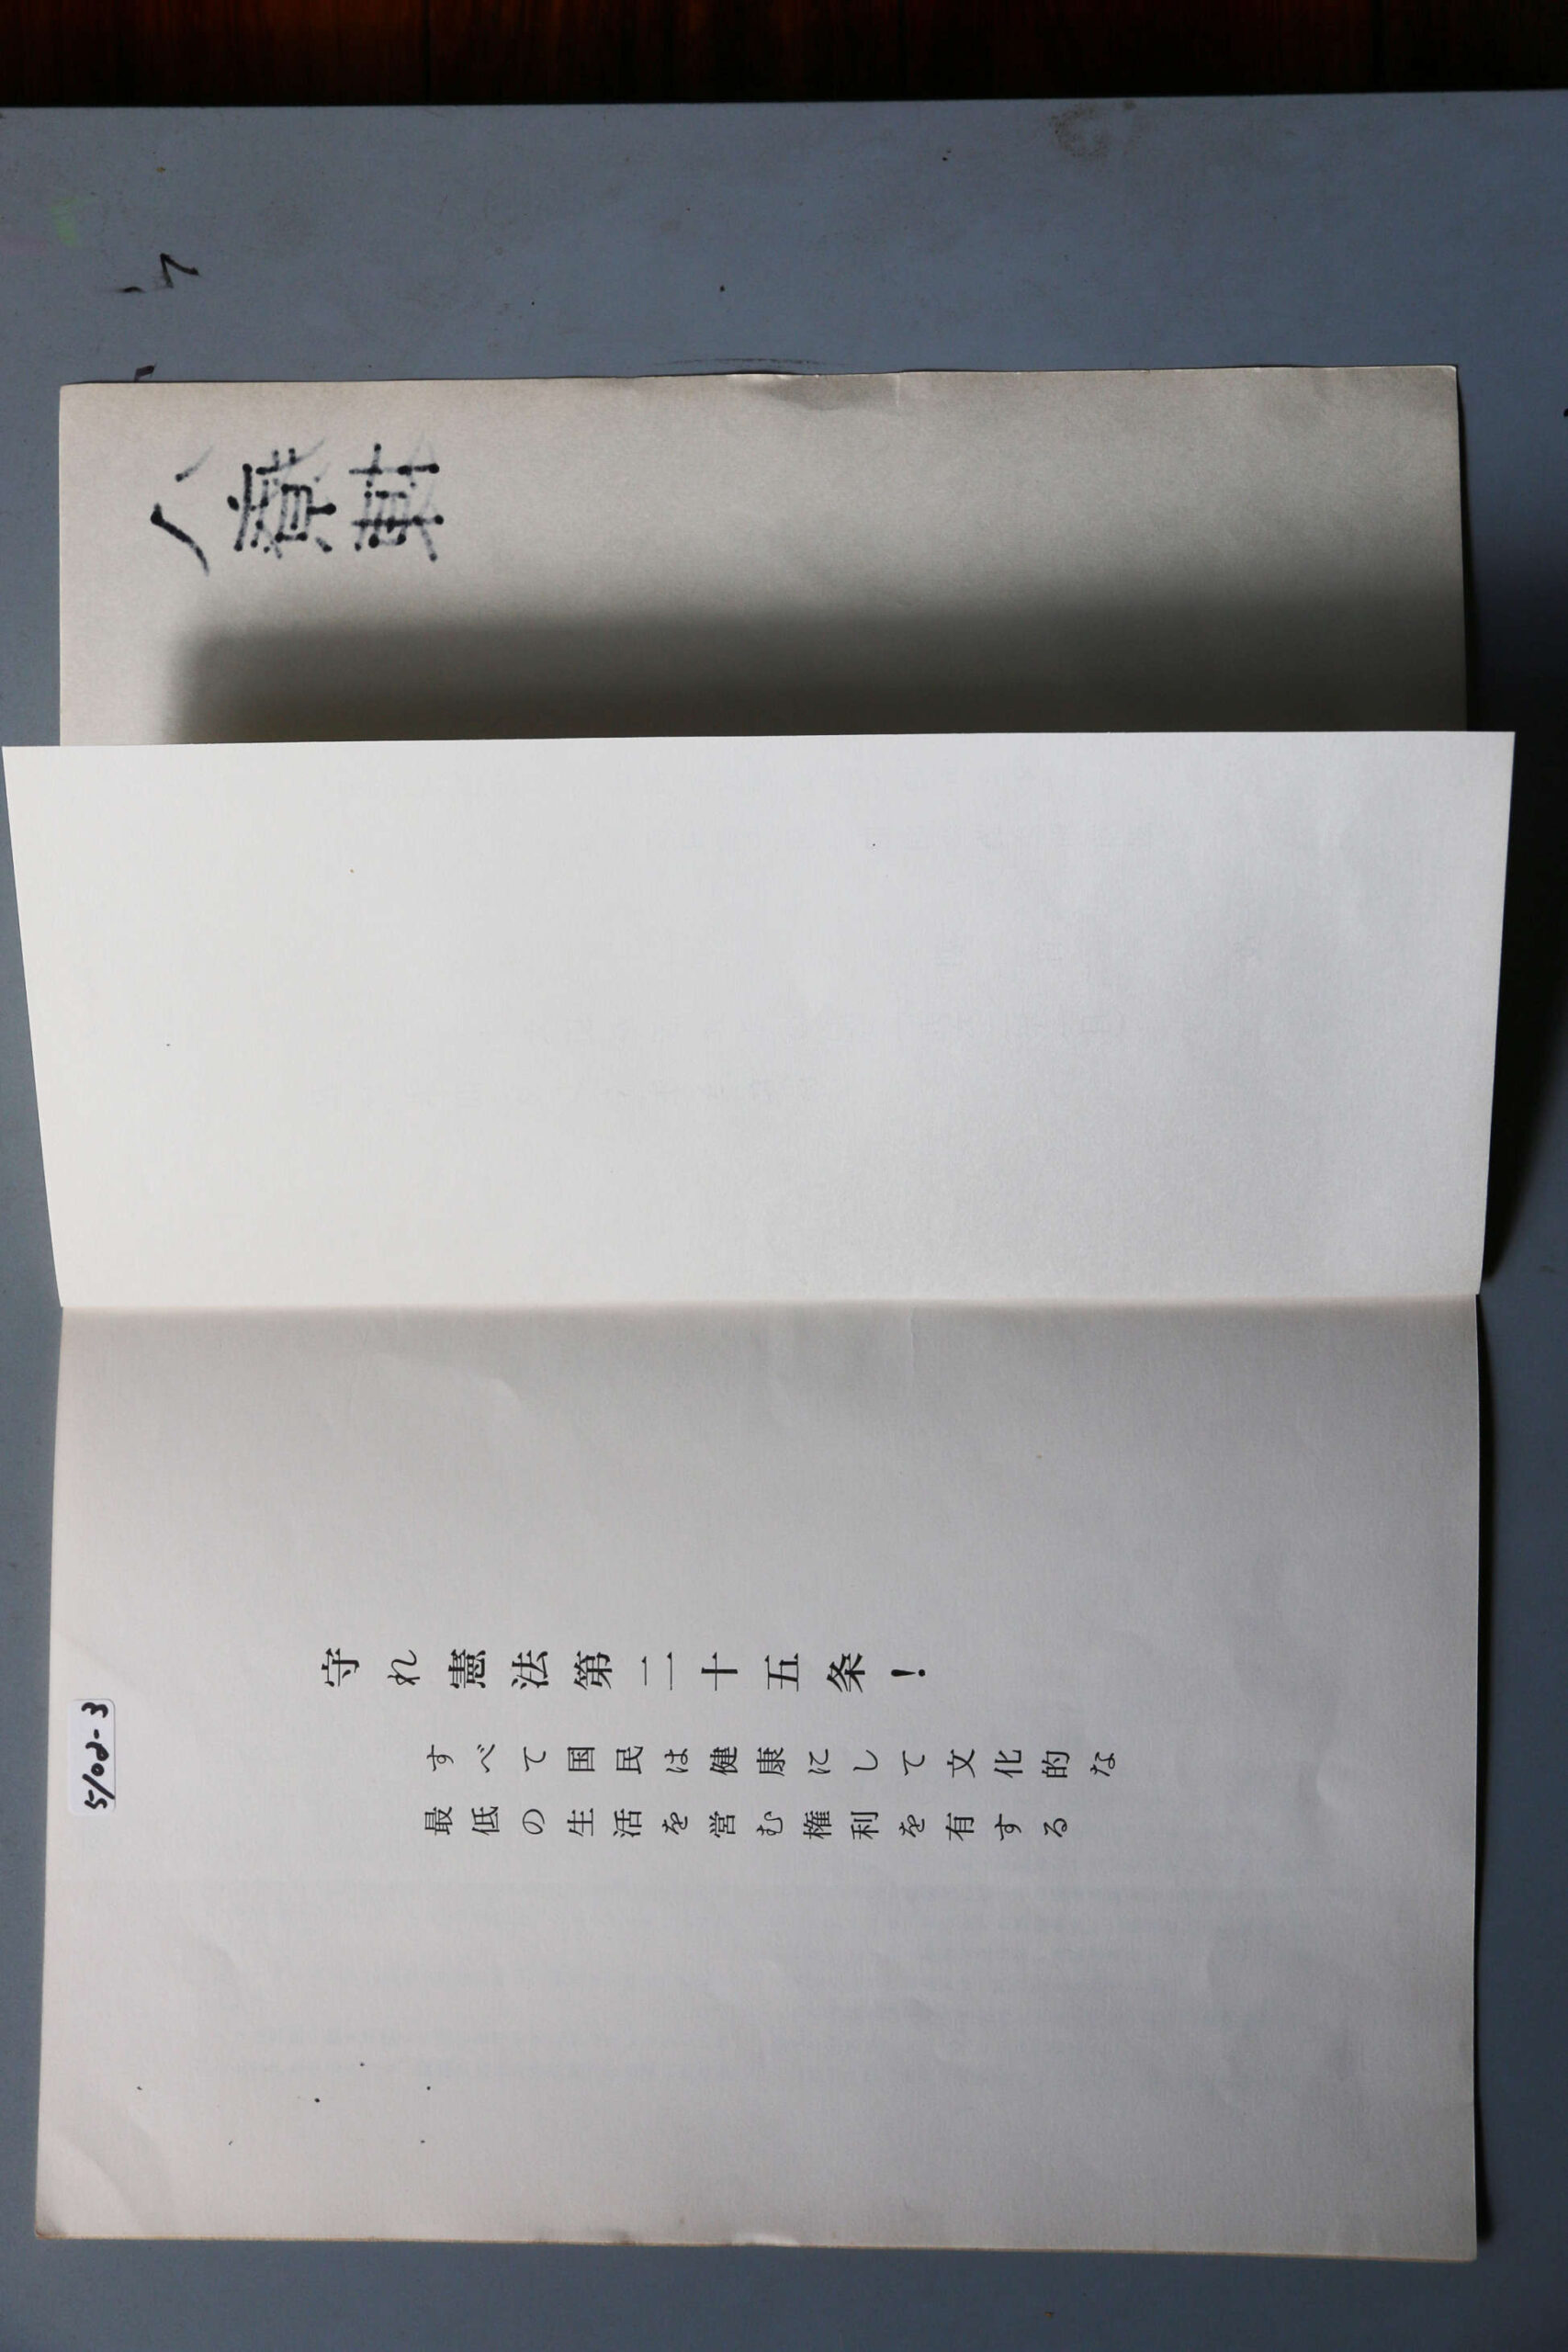 守れ憲法第二十五条!
すべて国民は健康にして文化的な
最低の生活を営む権利を有する